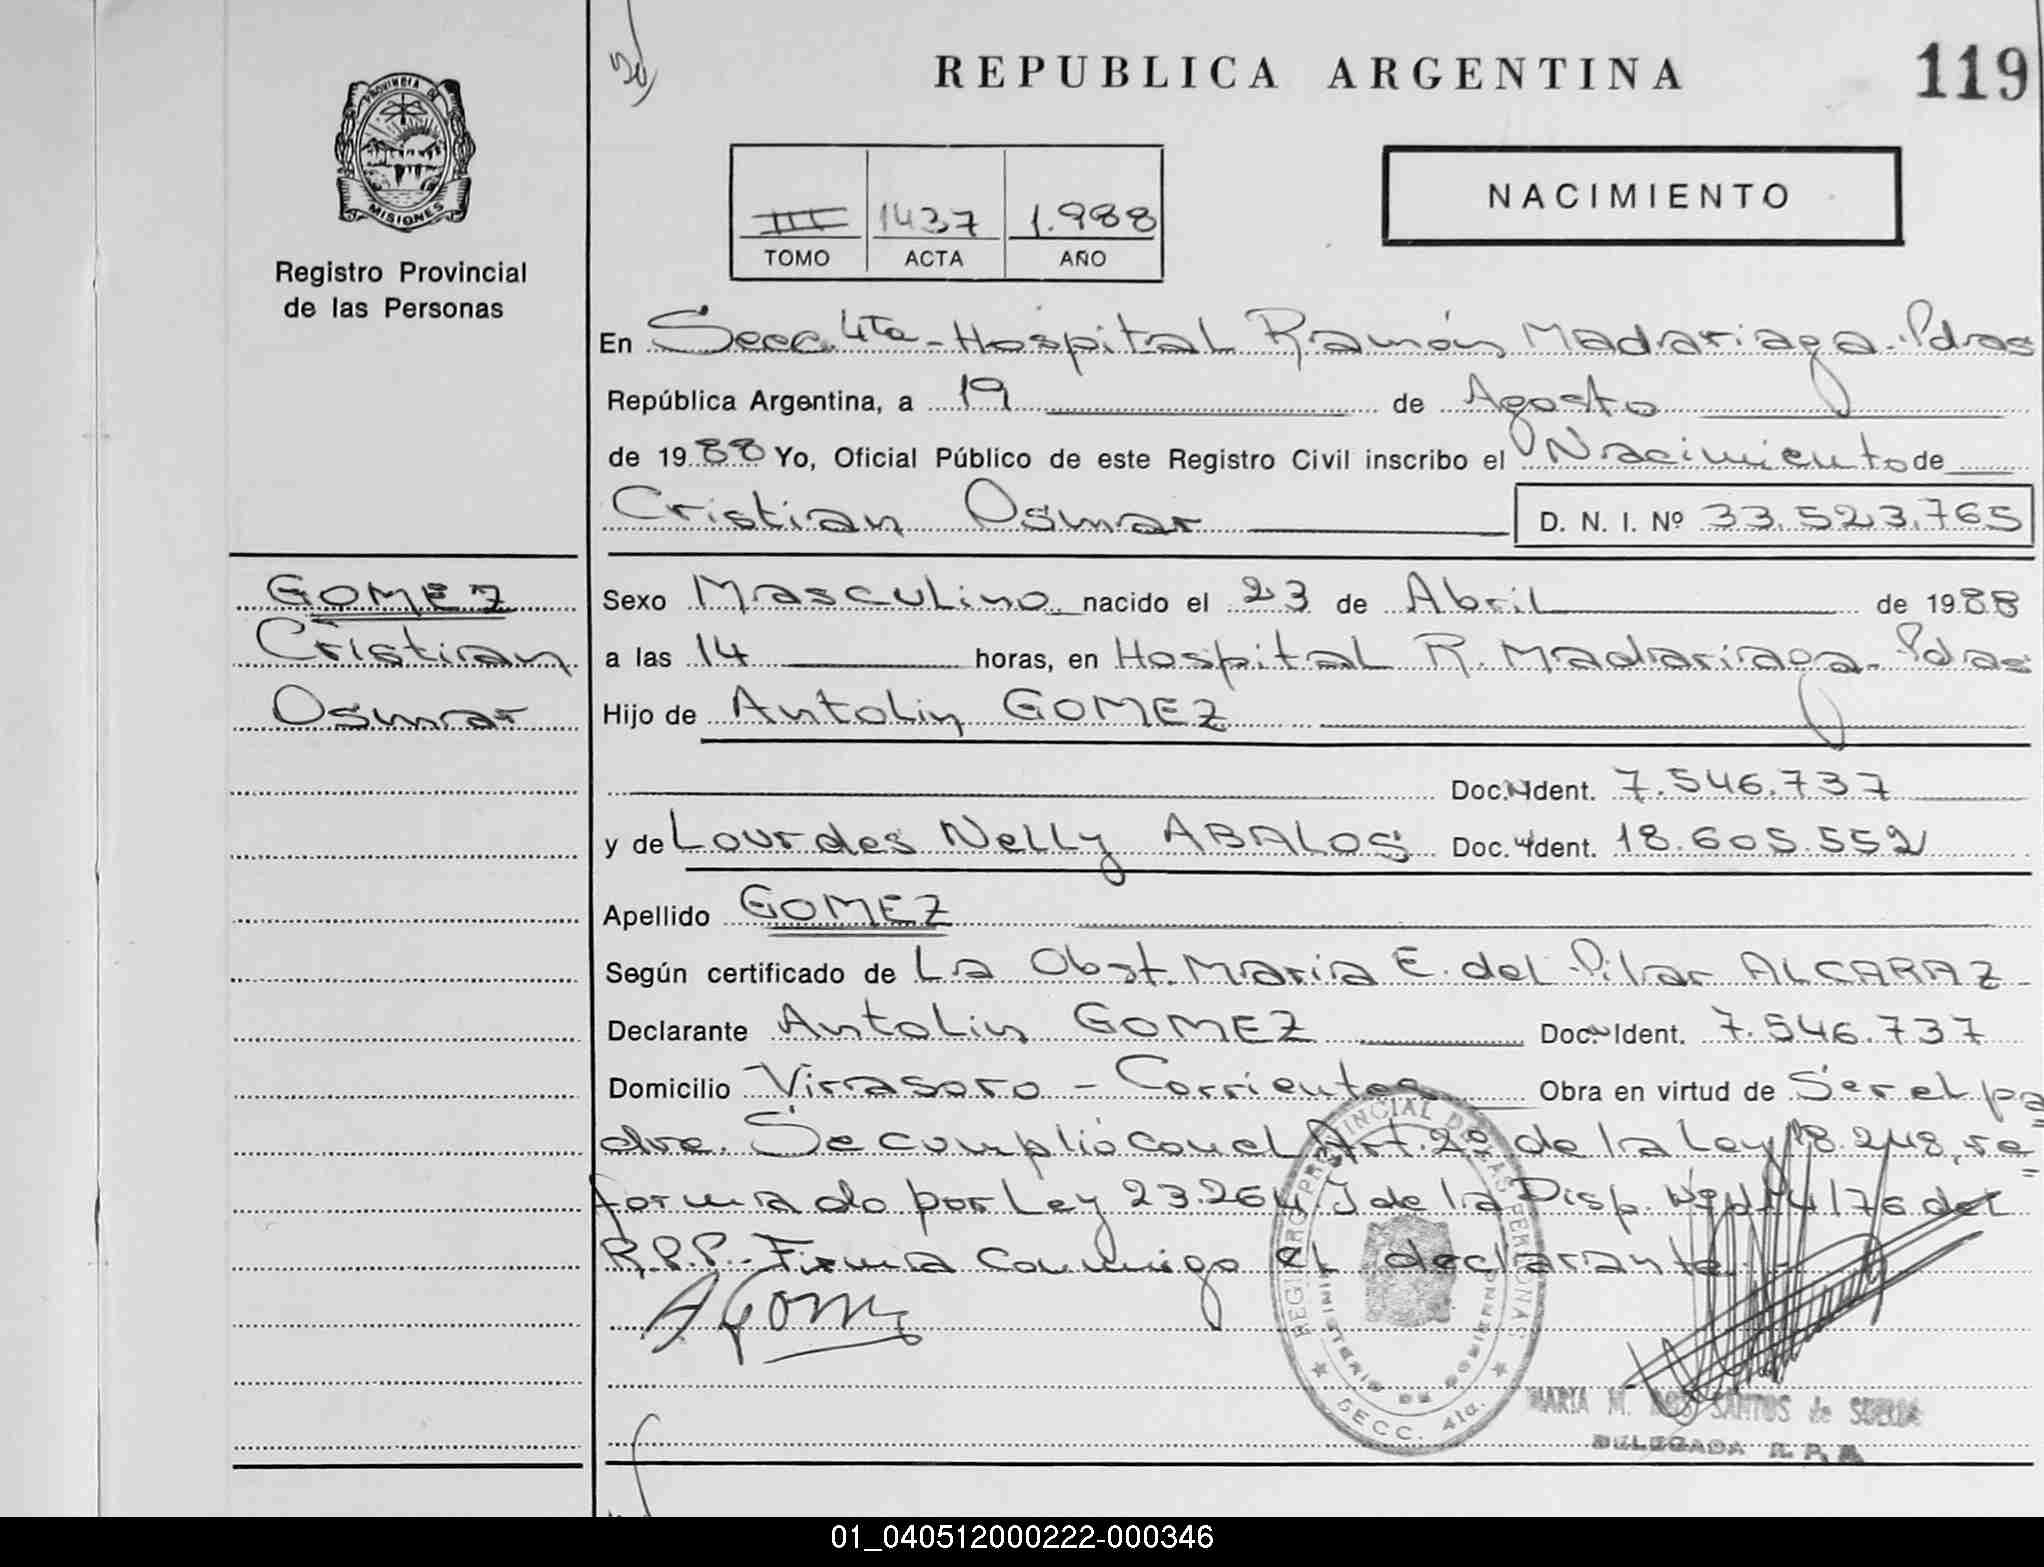 REPUBLICA ARGENTINA
119
PROVINCIA DE
MISIONES
Registro Provincial
de las Personas
NACIMIENTO
III 1437 1.988
TOMO ACTA AÑO
En Secc. 4ta - Hospital Ramón Madariaga - Pdas
República Argentina, a 19 de Agosto
de 1988 Yo, Oficial Público de este Registro Civil inscribo el Nacimiento de
Cristian Osmar D. N. I. Nº 33.523.765
GOMEZ
Cristian
Osmar
Sexo Masculino nacido el 23 de Abril de 1988
a las 14 horas, en Hospital R. Madariaga - Pdas
Hijo de Antolin GOMEZ
Doc. Ident. 7.546.737
y de Lourdes Nelly ABALOS Doc. Ident. 18.605.552
Apellido GOMEZ
Según certificado de La Obst. Maria E. del Pilar ALCARAZ
Declarante Antolin GOMEZ Doc. Ident. 7.546.737
Domicilio Virrasoro - Corrientes Obra en virtud de Ser el pa=
dre. Se cumplió con el Art. 2º de la Ley 18.248, re=
formado por Ley 23.264 y de la Disp. 14/76 del
R.P.P. - Firma conmigo el declarante -
A Gom
REGISTRO PROVINCIAL DE LAS PERSONAS
MINISTERIO DE GOBIERNO
SECC. 4ta.
MARIA M. DOS SANTOS de
DELEGADA R. P. P.
01_040512000222-000346